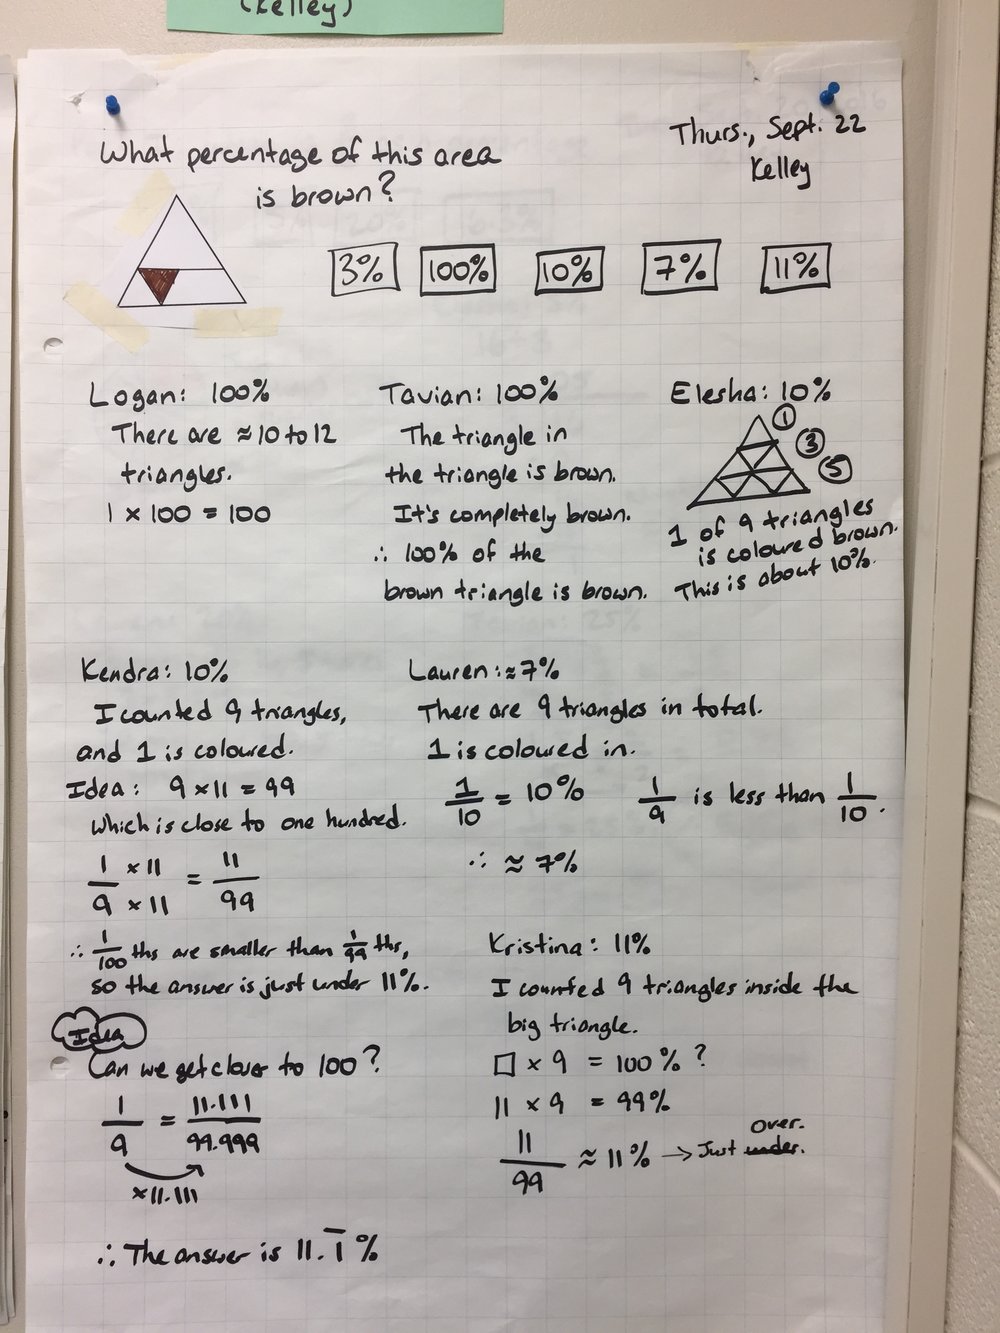 (Kelley)
Thurs., Sept. 22
Kelley
What percentage of this area
is brown?
3% 100% 10% 7% 11%
Logan: 100%
There are ≈ 10 to 12
triangles.
1 × 100 = 100
Tavian: 100%
The triangle in
the triangle is brown.
It's completely brown.
∴ 100% of the
brown triangle is brown.
Elesha: 10%
1
3
5
1 of 9 triangles
is coloured brown.
This is about 10%.
Kendra: 10%
I counted 9 triangles,
and 1 is coloured.
Idea: 9 × 11 = 99
which is close to one hundred.
1/9 × 11/× 11 = 11/99
∴ 1/100 ths are smaller than 1/99 ths,
so the answer is just under 11%.
Idea
Can we get closer to 100?
1/9 = 11.111/99.999
×11.111
∴ The answer is 11.1̅%
Lauren: ≈ 7%
There are 9 triangles in total.
1 is coloured in.
1/10 = 10% 1/9 is less than 1/10.
∴ ≈ 7%
Kristina: 11%
I counted 9 triangles inside the
big triangle.
□ × 9 = 100%?
11 × 9 = 99%
over.
11/99 ≈ 11% → Just under.